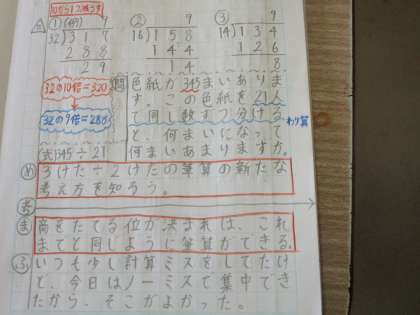 ① (例) 9
32)317
288
29
② 9
16)158
144
14
③ 9
14)134
126
8
32の10倍=320
32の9倍=288
問 色紙が345まいありま
す。この色紙を21人
で同じ数ずつ分ける
と、何まいになって
何まいあまりますか。
わり算
式)345÷21
め
3けた÷2けたの筆算の新たな
考え方を知ろう。
ま
商をたてる位が決まれば、これ
までと同じように筆算ができる。
ふ
いつも少し計算ミスをしてたけ
ど、今日はノーミスで集中でき
たから、そこがよかった。